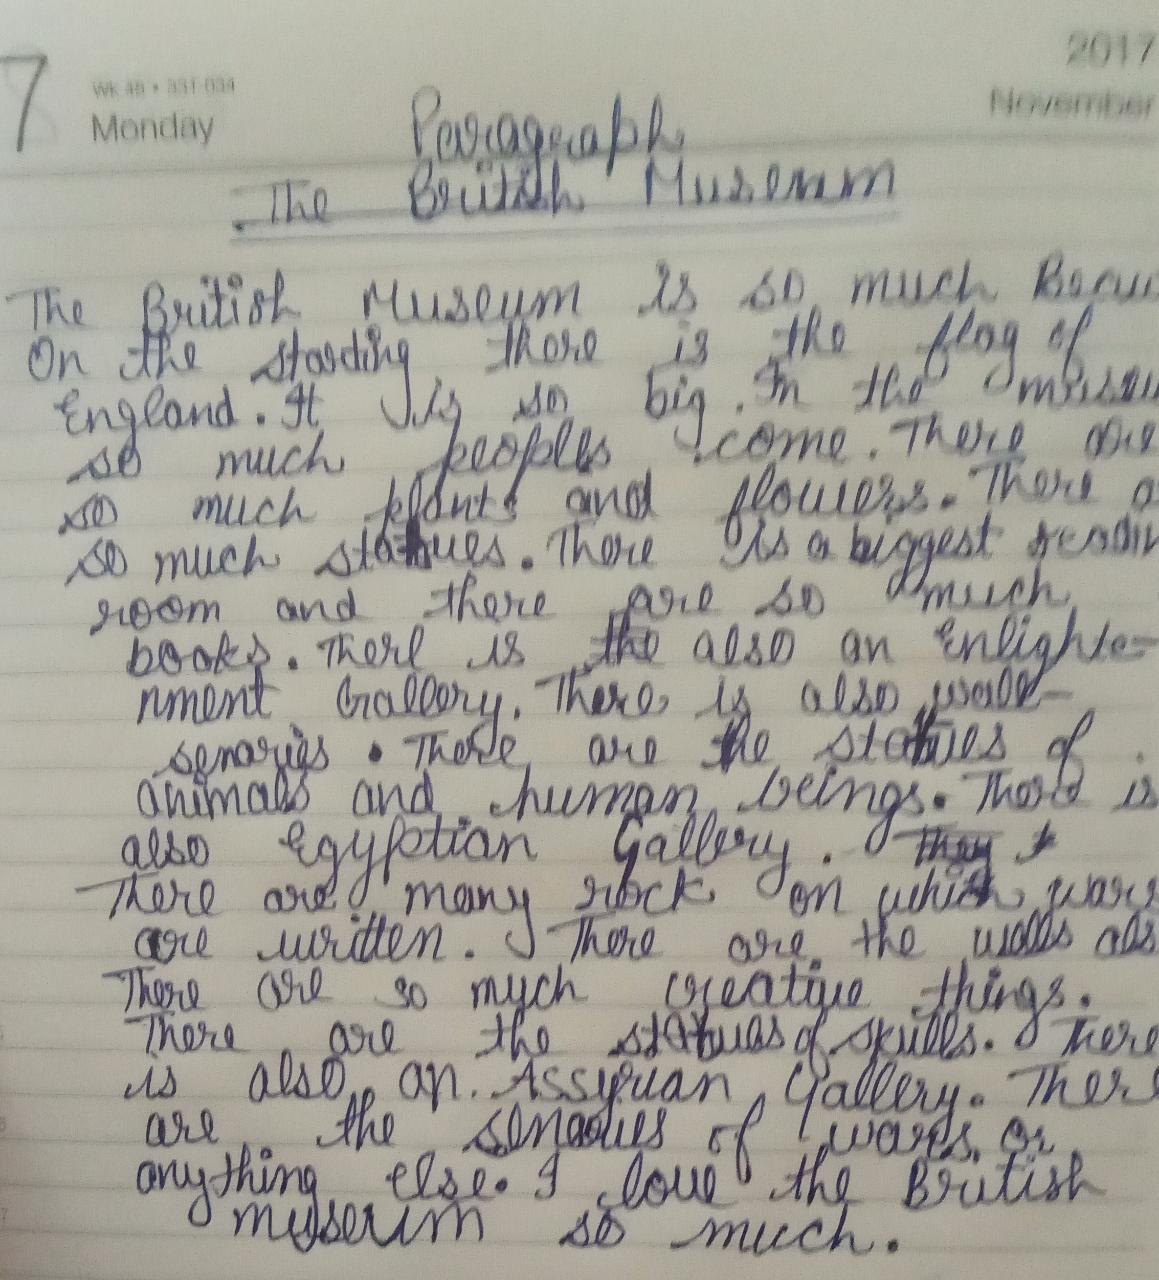 7
WK 48 • 331-034
Monday
2017
November
Paragraph
The British Museum
The British Museum is so much
On the starding there is the flag of
England. It is so big. In the
so much peoples come. There are
so much plants and flowers. There
so much statues. There is a biggest
room and there are so much
books. There is the also an Enlighte-
nment Gallery. There is also wall-
senaries. There are the statues of
animals and human beings. There is
also Egyptian Gallery. They
There are many rock on which wars
are written. There are the walls
There are so mych creative things.
There are the statues of skulls. There
is also an Assyruan Gallery. There
are the senaries of wares or
anything else. I love the British
myseum so much.